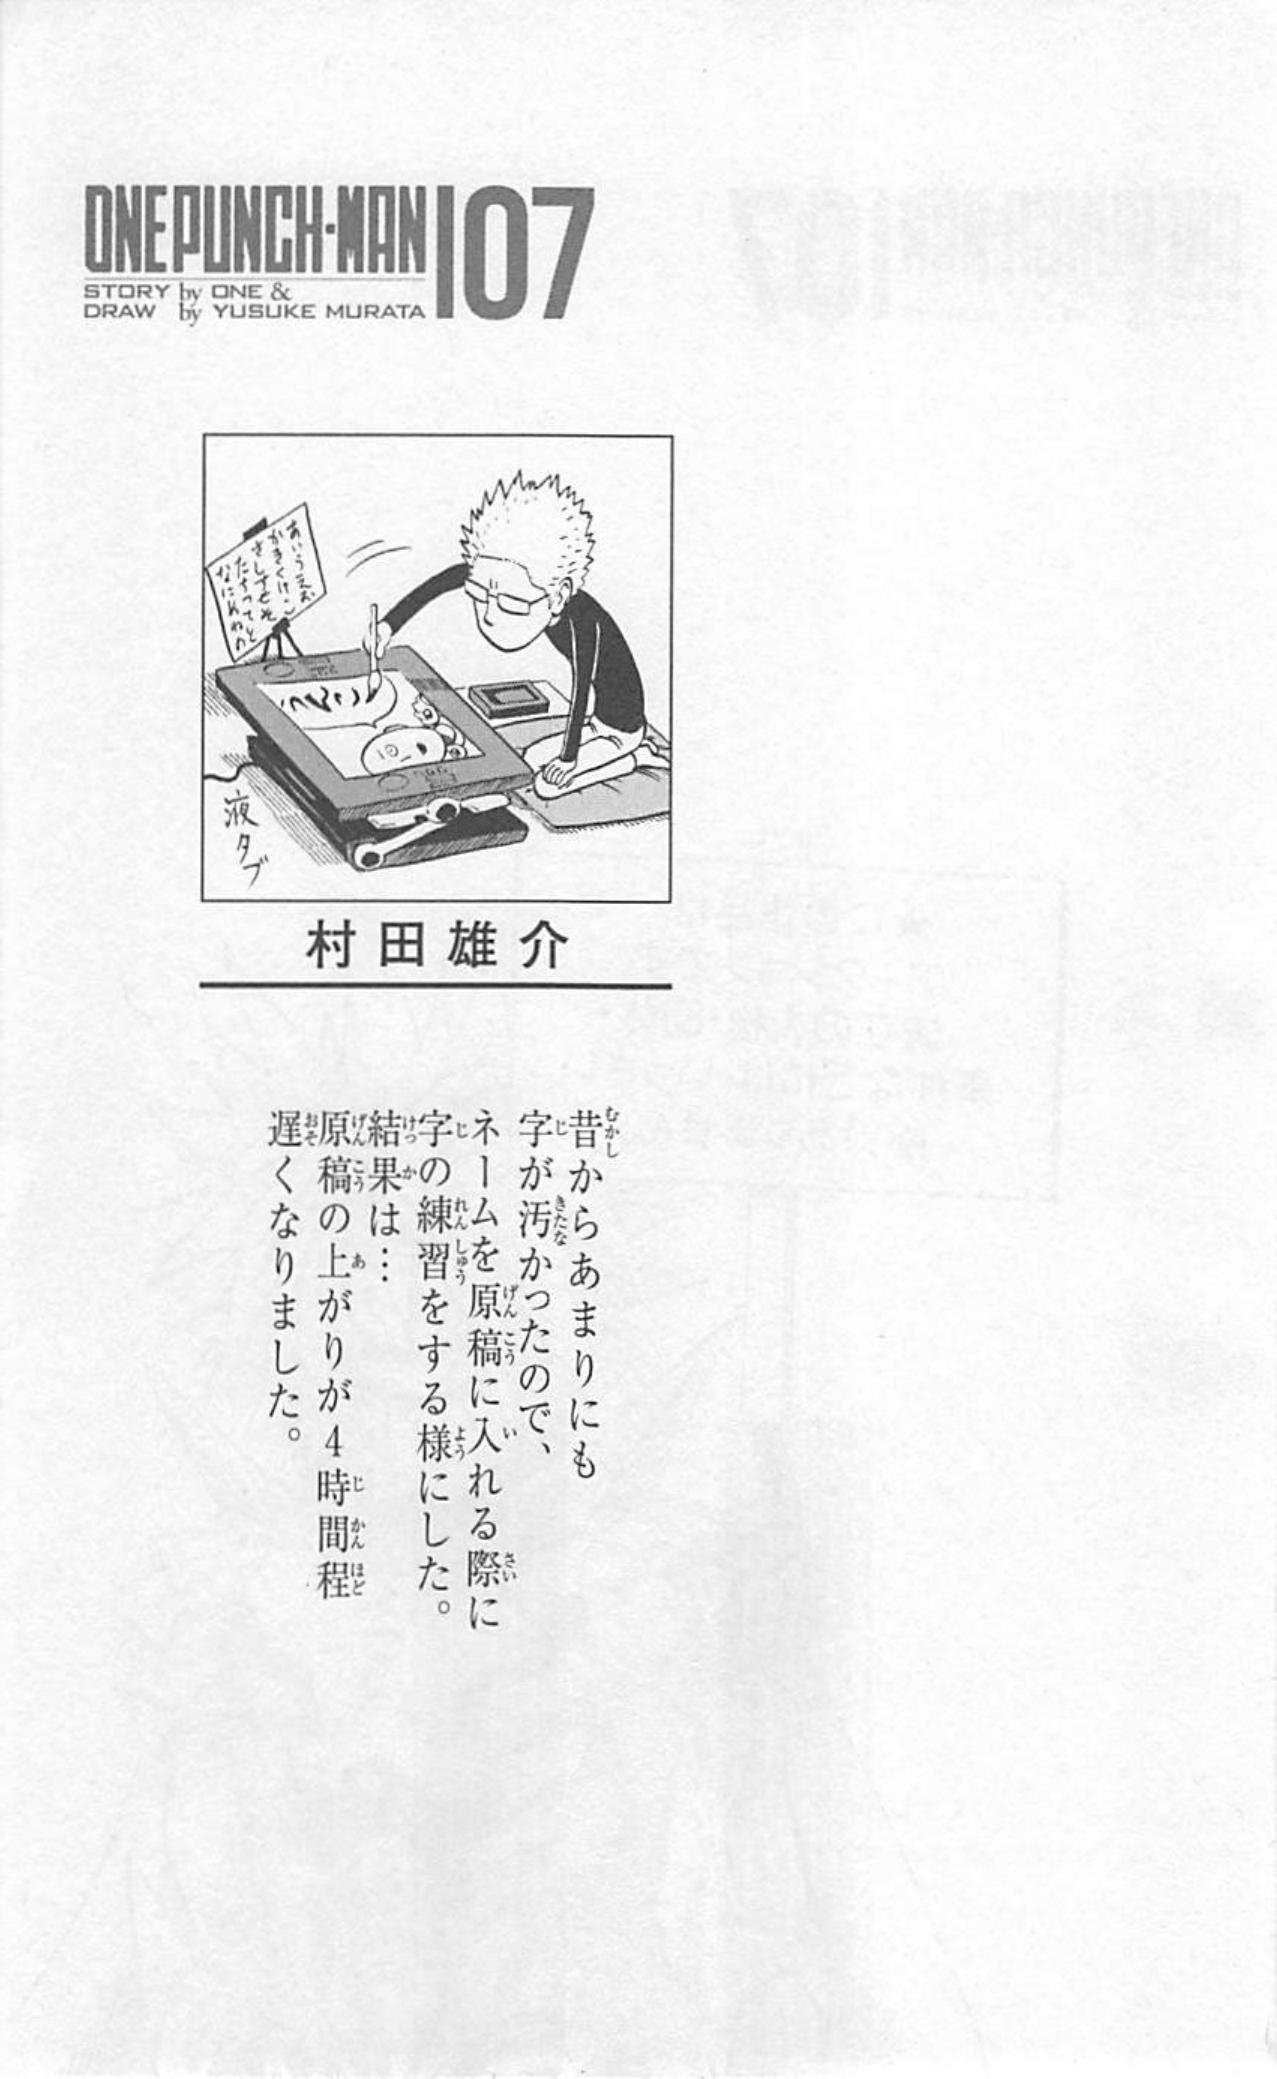 ONE PUNCH-MAN 107
STORY by ONE &
DRAW by YUSUKE MURATA
あいうえお
かきくけこ
さしすせそ
たちつてと
なにぬねの
うんこ
液タブ
村田雄介
昔からあまりにも
字が汚かったので、
ネームを原稿に入れる際に
字の練習をする様にした。
結果は…
原稿の上がりが4時間程
遅くなりました。